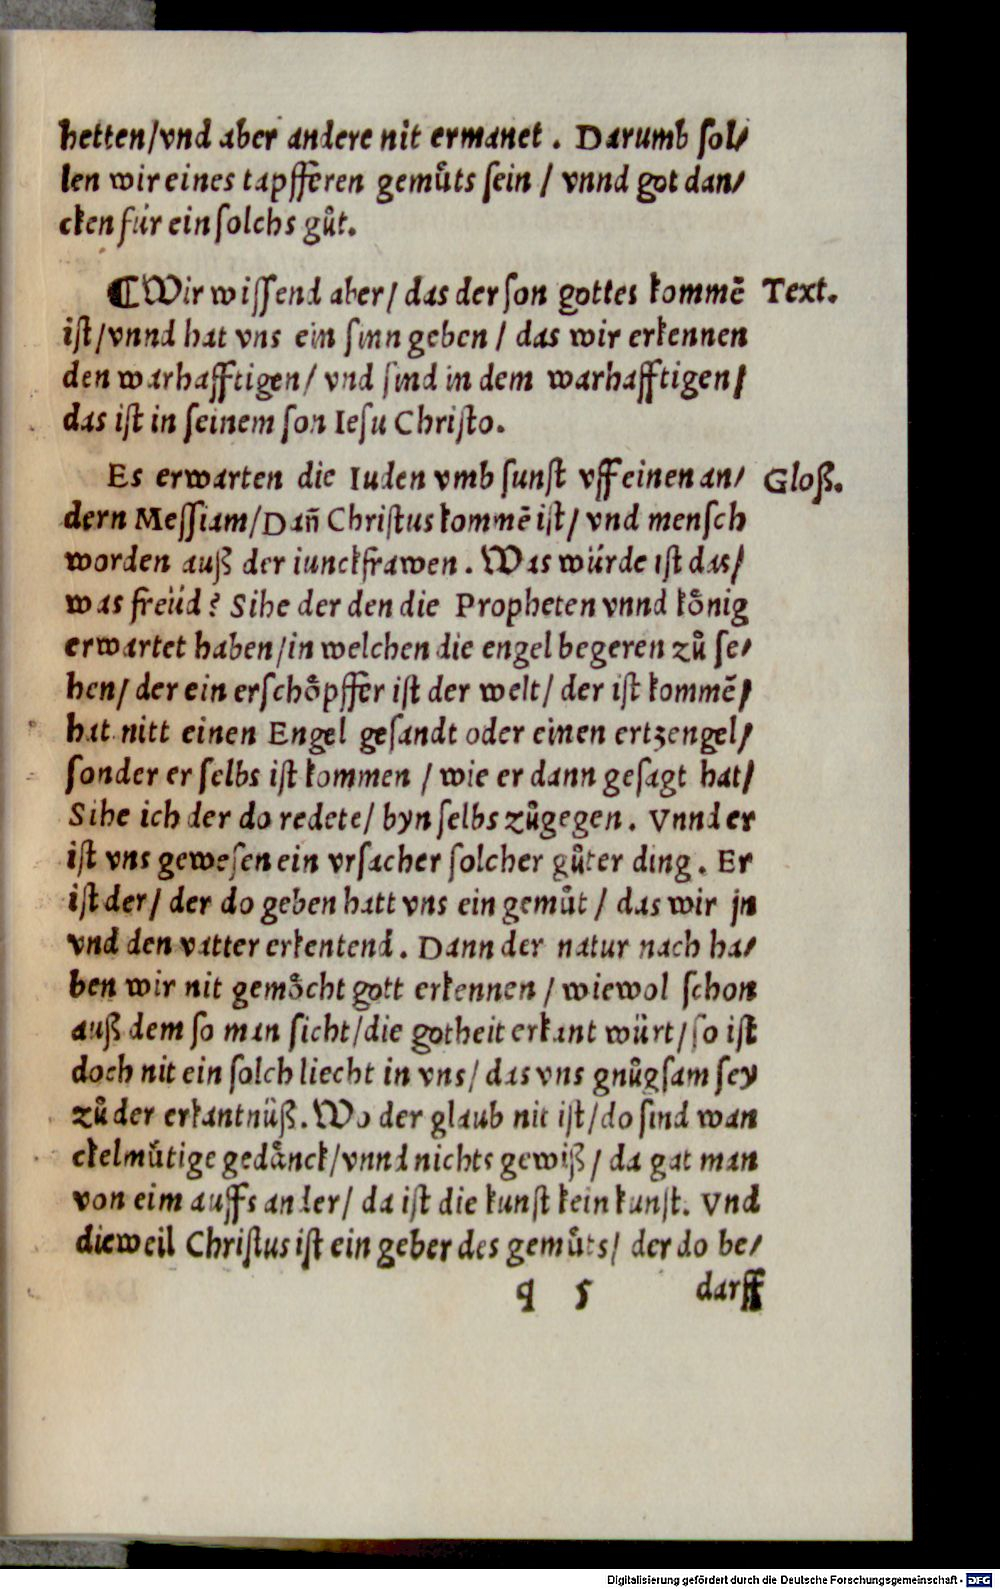 hetten/vnd aber andere nit ermanet . Darumb ſol/
len wir eines tapfferen gemuͤts ſein / vnnd got dan/
cken für ein ſolchs guͤt.
¶Wir wiſſend aber/ das der ſon gottes kommē Text.
iſt/vnnd hat vns ein ſinn geben / das wir erkennen
den warhafftigen/ vnd ſind in dem warhafftigen/
das iſt in ſeinem ſon Ieſu Chriſto.
Es erwarten die Iuden vmb ſunſt vff einen an/ Gloß.
dern Meſſiam/Dañ Chriſtus kommē iſt/ vnd menſch
worden auß der iunckfrawen . Was würde iſt das/
was freüd? Sihe der den die Propheten vnnd koͤnig
erwartet haben/in welchen die engel begeren zuͦ ſe/
hen/ der ein erſchoͤpffer iſt der welt/ der iſt kommē/
hat nitt einen Engel geſandt oder einen ertzengel/
ſonder er ſelbs iſt kommen / wie er dann geſagt hat/
Sihe ich der do redete/ byn ſelbs zuͦgegen . Vnnd er
iſt vns geweſen ein vrſacher ſolcher guͦter ding . Er
iſt der/ der do geben hatt vns ein gemuͤt / das wir jn
vnd den vatter erkentend . Dann der natur nach ha/
ben wir nit gemoͤcht gott erkennen / wiewol ſchon
auß dem ſo man ſicht/die gotheit erkant würt/ſo iſt
doch nit ein ſolch liecht in vns/ das vns gnuͦgſam ſey
zuͦ der erkantnüß. Wo der glaub nit iſt/do ſind wan
ckelmuͤtige gedaͤnck/vnnd nichts gewiß / da gat man
von eim auffs ander/ da iſt die kunſt kein kunſt. Vnd
dieweil Chriſtus iſt ein geber des gemuͤts/ der do be/
q 5 darff
Digitalisierung gefördert durch die Deutsche Forschungsgemeinschaft - DFG